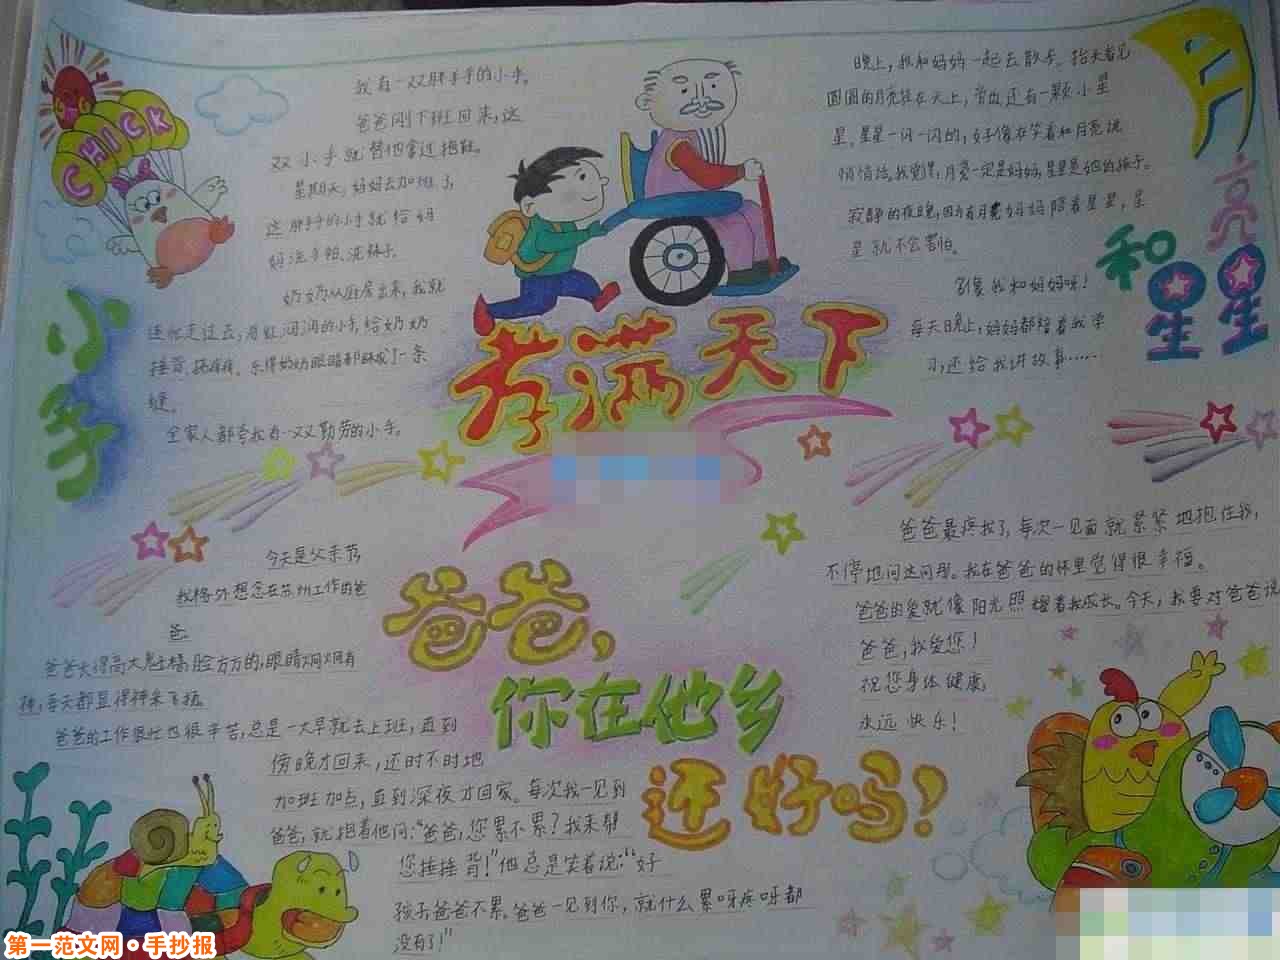 CHICK
小手
我有一双胖手手的小手。
爸爸刚下班回来,这
双小手就替他拿过拖鞋。
星期天,妈妈去加班了,
这胖手手的小手就给妈
妈洗手帕、洗袜子。
奶奶从厨房出来,我就
连忙走过去,用红润润的小手,给奶奶
捶背、挠痒痒。乐得奶奶眼睛都眯成了一条
缝。
全家人都夸我有一双勤劳的小手。
孝满天下
月亮
和星星
晚上,我和妈妈一起去散步。抬头看见
圆圆的月亮挂在天上,旁边还有一颗小星
星。星星一闪一闪的,好像在笑着和月亮说
悄悄话。我觉得,月亮一定是妈妈,星星是她的孩子。
寂静的夜晚,因为有月亮妈妈陪着星星,星
星就不会害怕。
多像我和妈妈呀!
每天晚上,妈妈都陪着我学
习,还给我讲故事……
爸爸,
你在他乡
还好吗?
今天是父亲节,
我格外想念在苏州工作的爸
爸。
爸爸长得高大魁梧,脸方方的,眼睛炯炯有
神,每天都显得神采飞扬。
爸爸的工作很忙也很辛苦,总是一大早就去上班,直到
傍晚才回来,还时不时地
加班加点,直到深夜才回家。每次我一见到
爸爸,就抱着他问:“爸爸,您累不累?我来帮
您捶捶背!”他总是笑着说:“好
孩子爸爸不累。爸爸一见到你,就什么累呀疼呀都
没有了!”
爸爸最疼我了,每次一见面就紧紧地抱住我,
不停地问这问那。我在爸爸的怀里觉得很幸福。
爸爸的爱就像阳光照耀着我成长。今天,我要对爸爸说
爸爸,我爱您!
祝您身体健康,
永远快乐!
第一范文网·手抄报